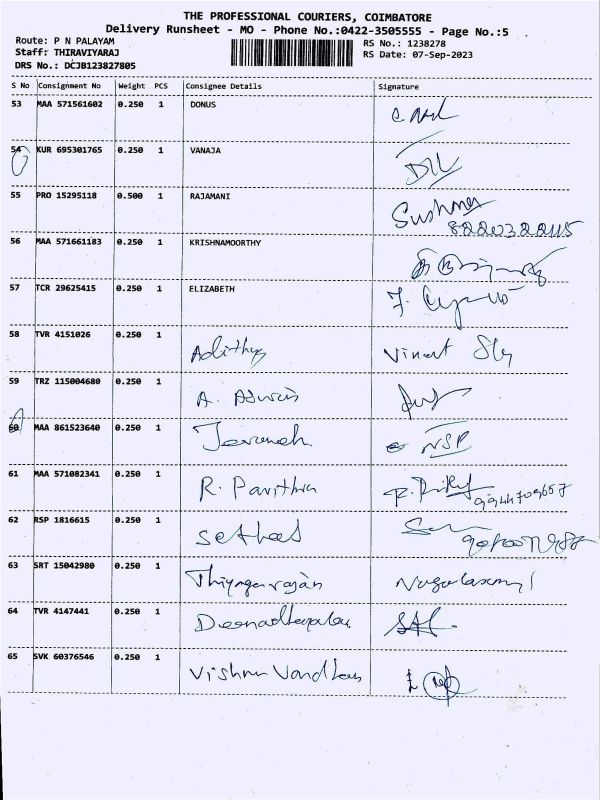 THE PROFESSIONAL COURIERS, COIMBATORE
Delivery Runsheet - MO - Phone No.:0422-3505555 - Page No.:5
Route: P N PALAYAM
RS No.: 1238278
Staff: THIRAVIYARAJ
RS Date: 07-Sep-2023
DRS No.: DCJB123827805
S No Consignment No Weight PCS Consignee Details Signature
53 MAA 571561602 0.250 1 DONUS
54 KUR 695301765 0.250 1 VANAJA
55 PRO 15295118 0.500 1 RAJAMANI Sushma
56 MAA 571661183 0.250 1 KRISHNAMOORTHY
57 TCR 29625415 0.250 1 ELIZABETH
58 TVR 4151026 0.250 1 Adithya Vinent
59 TRZ 115004680 0.250 1 A.
60 MAA 861523640 0.250 1 NSP
61 MAA 571082341 0.250 1 R. Pavithra
9944709657
62 RSP 1816615 0.250 1
63 SRT 15042980 0.250 1 Thiyagarajan Nagalaxmi
64 TVR 4147441 0.250 1 Deenadhayalan
65 SVK 60376546 0.250 1 Vishnu